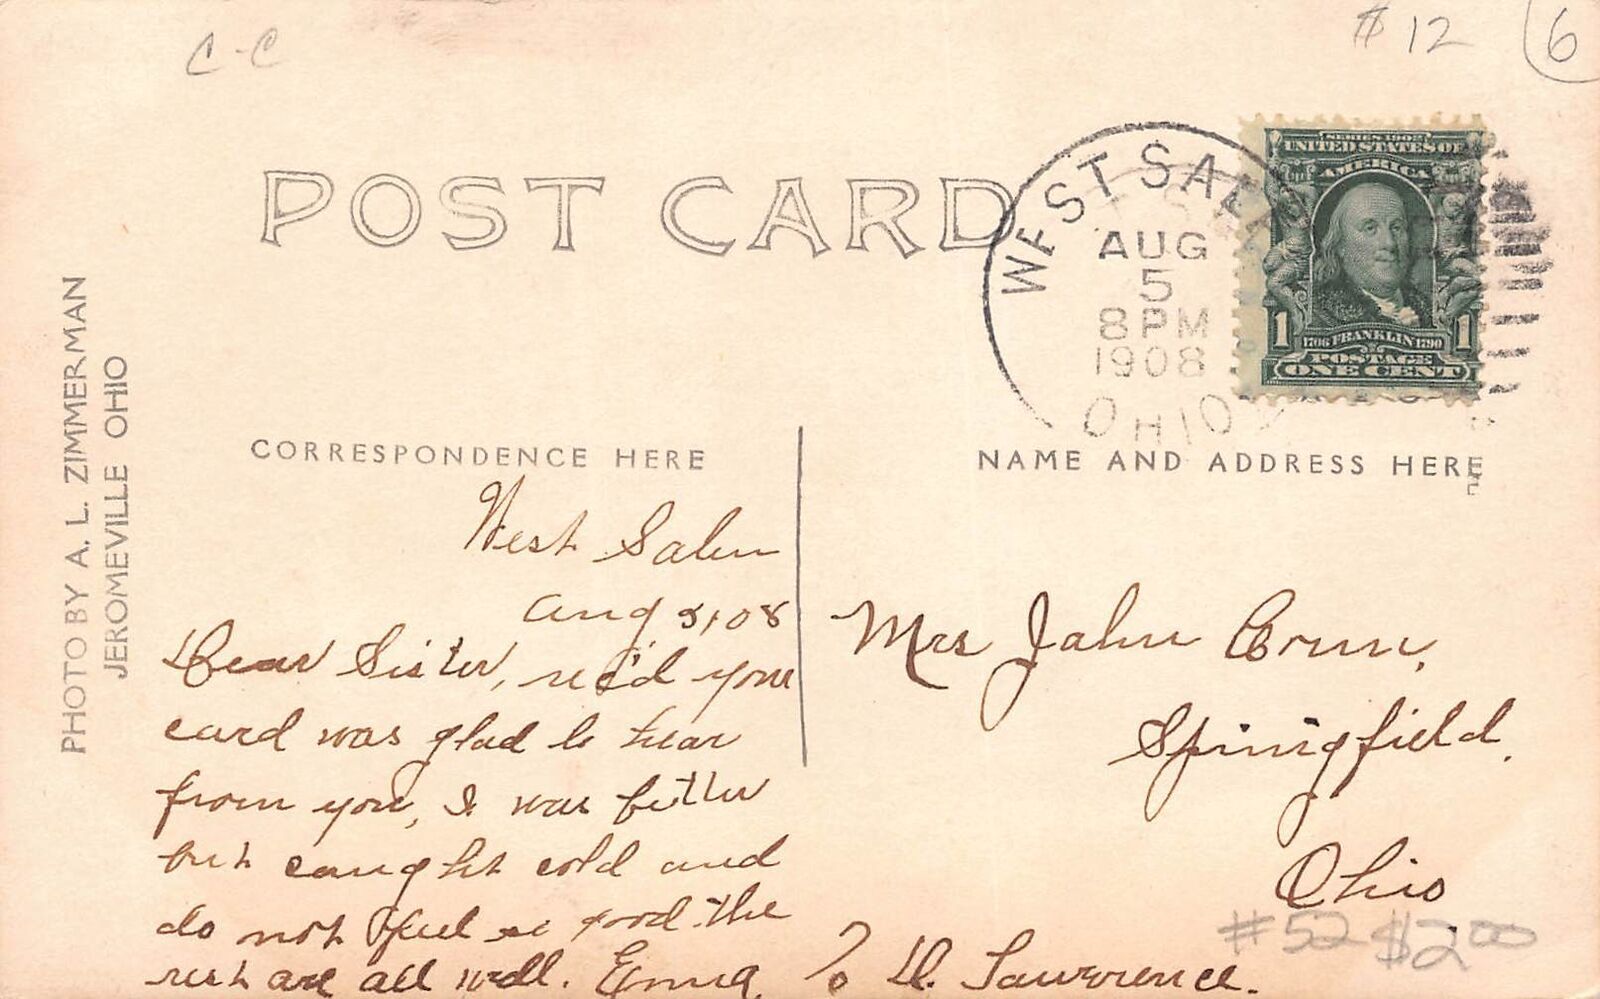 C-C
#12
6
POST CARD
WEST SALEM
AUG
5
8 PM
1908
OHIO
SERIES 1902
UNITED STATES OF
AMERICA
1 1
1706 FRANKLIN 1790
POSTAGE
ONE CENT
PHOTO BY A. L. ZIMMERMAN
JEROMEVILLE OHIO
CORRESPONDENCE HERE
West Salem
Aug 5, 08
Dear Sister, rec'd your
card was glad to hear
from you, I was better
but caught cold and
do not feel so good the
rest are all well. Emma
NAME AND ADDRESS HERE
Mrs John
Springfield,
Ohio
D. Lawrence.
#52 $2.00